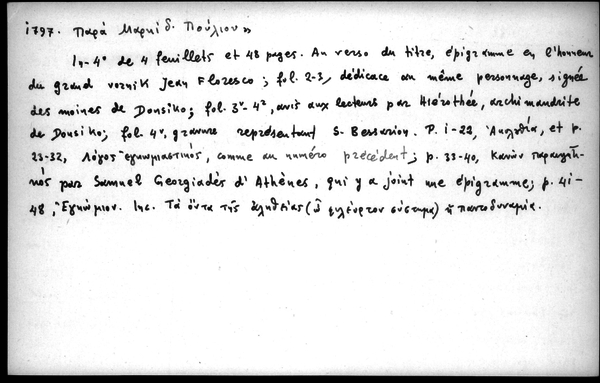 1797. Παρὰ Μαρκίδ. Πούλιου»
In-4° de 4 feuillets et 48 pages. Au verso du titre, épigramme en l'honneur
du grand vornik Jean Floresco; fol. 2-3, dédicace au même personnage, signée
des moines de Dousiko; fol. 3ᵛ-4ʳ, avis aux lecteurs par Hiérothée, archimandrite
de Dousiko; fol. 4ᵛ, gravure représentant S. Bessarion. P. 1-22, Ἀκολουθία, et p.
23-32, Λόγος ἐγκωμιαστικός, comme au numéro précédent; p. 33-40, Κανὼν παρακλητι-
κὸς par Samuel Georgiadès d'Athènes, qui y a joint une épigramme; p. 41-
48, Ἐγκώμιον. Inc. Τὰ ὄντα τῆς ἀληθείας (ὦ φιλέορτον σύστημα) ἡ παντοδυναμία.